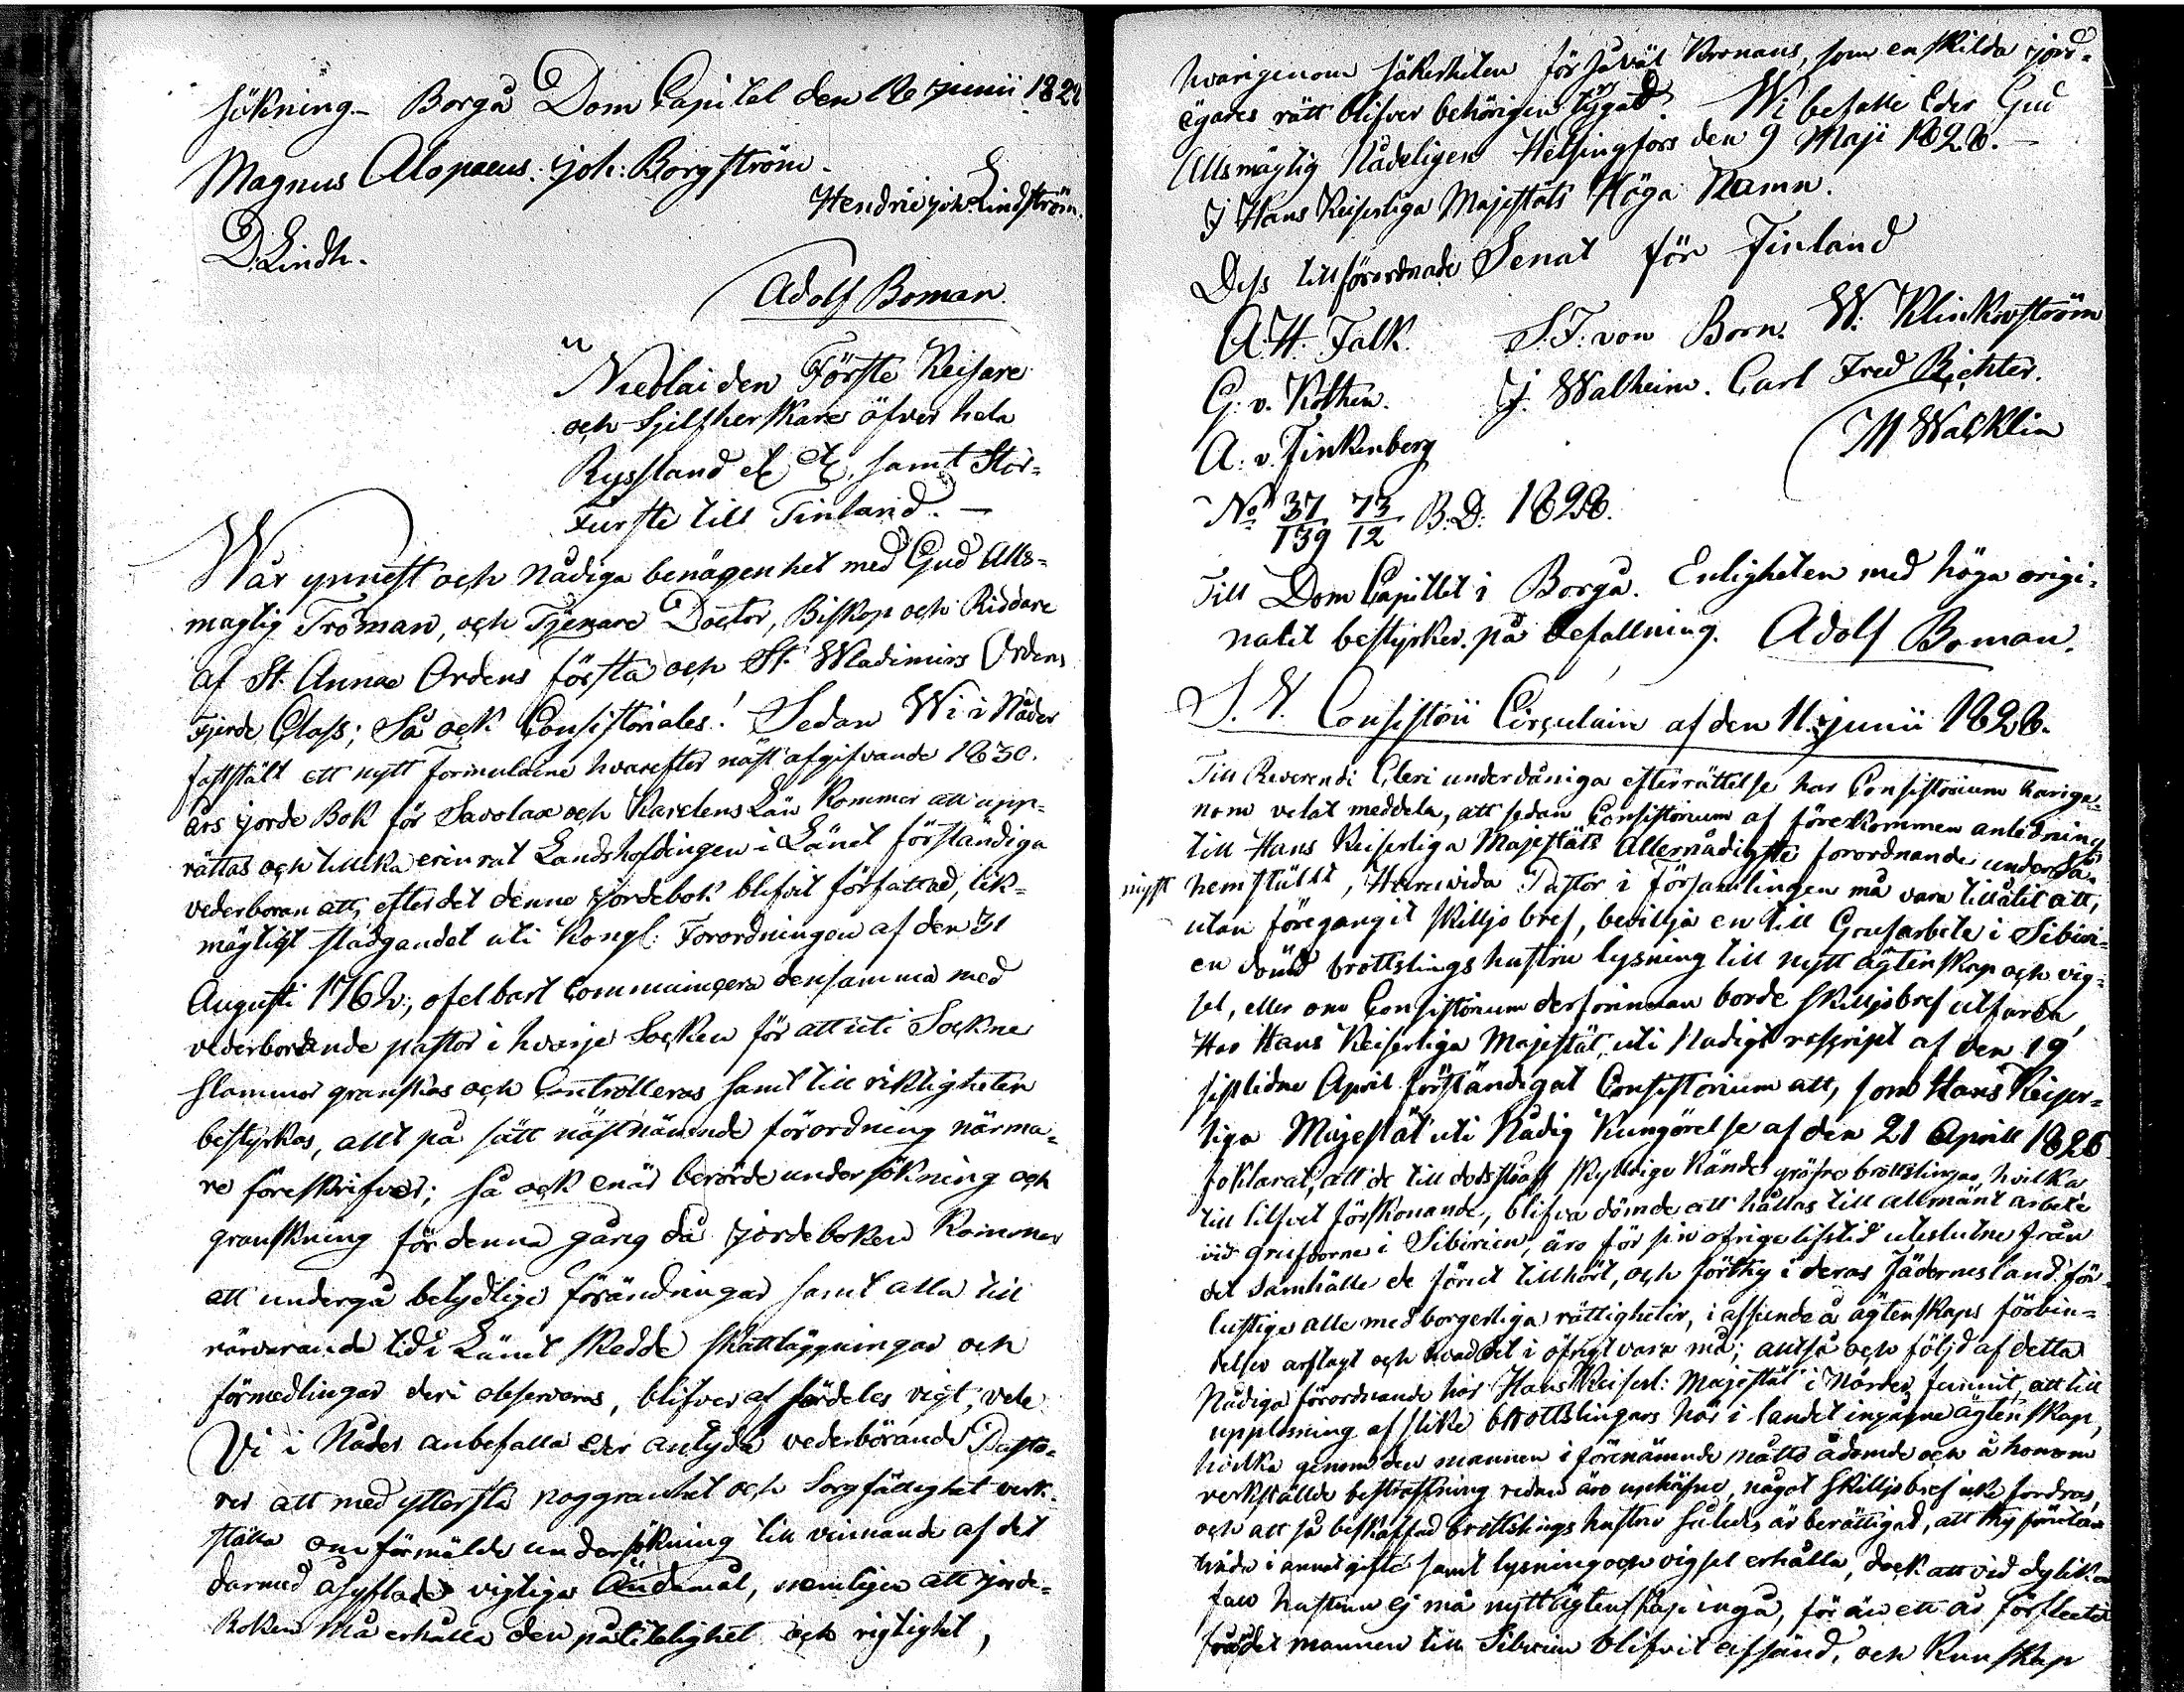 sökning. Borgå Dom Capitel den 18 junii 182
Magnus Alopaeus. Joh: Borgström.
Hendric Joh: Lindström.
D. Lindh.
Adolf Boman
Nicolai den Förste Keisare
och Sjelfherskare öfver hela
Ryssland etc etc, samt Stor-
Furste till Finland. –
Wår ynnest och nådiga benägenhet med Gud Alls-
magtig Troman, och Tjenare Doctor, Biskop och Riddare
af St. Annae Ordens första och St. Wladimirs Ordens
Fjerde Class; Så ock Consistoriales! Sedan Wi i Nåder
fastställt ett nytt formulaire hvarefter näst afgifvande 1830.
års jorde Bok för Savolax och Karelens Län kommer att upp-
rättas och tillika erinrat Landshöfdingen i Länet förständiga
vederboran att, efter det denne jordebok blifvit författad, lik-
mägtigt stadgandet uti Kongl: Forordningen af den 31
Augusti 1762, ofelbart Communicera densamma med
vederborande pastor i hvarje Socken för att uti Sockne
stammor granskas och Controlleras samt till riktigheten
bestyrkas, allt på sätt nästnämnde förordning närma-
re föreskrifver; så ock enär berörde undersökning och
granskning för denna gång då jordeboken Kommer
att undergå betydlige förändringar samt alla till
närvarande tid i Länet skedde skattläggningar och
förmedlingar deri observeras, blifver af särdeles vigt, vele
Vi i Nåder anbefalla eder antyda vederbörande Pasto-
rer att med yttersta noggranhet och Sorgfällighet verk-
ställa omförmälde undersökning till vinnande af det
darmed åsyftade vigtiga Ändamål, nemligen att jorde-
Boken Må erhålla den pålitelighet och rigtighet,
hvarigenom säkerheten för såväl Kronans, som enskilda jord-
ägares rätt blifver behörigen Wi befalle Eder Gud
Allsmägtig Nådeligen Helsingfors den 9 Maji 1828. –
I Hans Keiserliga Majestäts Höga Namn.
Dess tillförordnade Senat för Finland
A. H. Falk. S. F. von Born. W. Klinkowström
G. v. Kothen. J. Walheim. Carl Fred Richter.
A. v. Finkenberg
M Walklin
No 37/139 73/12 B. D. 1828.
Till Dom Capitlet i Borgå. Enligheten med höga origi-
nalet bestyrker på befallning. Adolf Boman.
S. V. Consistorii Circulair af den 11. junii 1828.
Till Reverendi Cleri underdåniga efterrättelse har Consistorium härige-
nom velat meddela, att sedan Consistorium af förekommen anledning
till Hans Keiserliga Majestäts Allernådigste forordnande underdå-
nigst hemstälelt, Huruvida Pastor i församlingen må vara tillåtit att,
utan föregangit skilljobref, bevillja en till Grufarbete i Sibiri-
en dömd brottslings hustru lysning till nytt ägtenskap och vig-
sel, eller om Consistorium derförinnan borde skilljobref utfärda,
Har Hans Keiserliga Majestät uti Nådigt rescript af den 19
sistlidne April förständigat Consistorium att, som Hans Keiser-
liga Majestät uti Nådig kungörelse af den 21 Aprill 1826
foklarat, att de till dödsstraff skyldige kände gröfre brottslingar, hvilka
till lifvet förskonande, blifva dömde att hållas till allmänt arbete
vid grufvorne i Sibirien, äro för sin ofrige lifstid uteslutne från
det samhälle de förut tillhört, och förthy i deras Fädernesland för-
lustige alle medborgerliga rättigheter, i afseende å ägtenskaps förbin-
delse arfslagt och hvad det i öfrigt vara må; altså och följd af detta
Nådiga förordnande har Hans Keiserl: Majestät i Nåder funnit, att till
upplösning af slike brottslingars här i landet ingångne ägtenskap,
hvilka genom den mannen i förenämnde måtto ådömde och å honom
verkställde bestraffning redan äro uphäfne, något skilljobref icke fordras,
och att så beskaffad brottslings hustru således är berättigad, att
träda i annat gifte samt lysning och vigsel erhålla, dock att vid dylika
fall hustrun ej må nytt ägtenskap ingå, för än ett år förflutit
från det mannen till Sibirien blifvit afsänd, och Kunskap